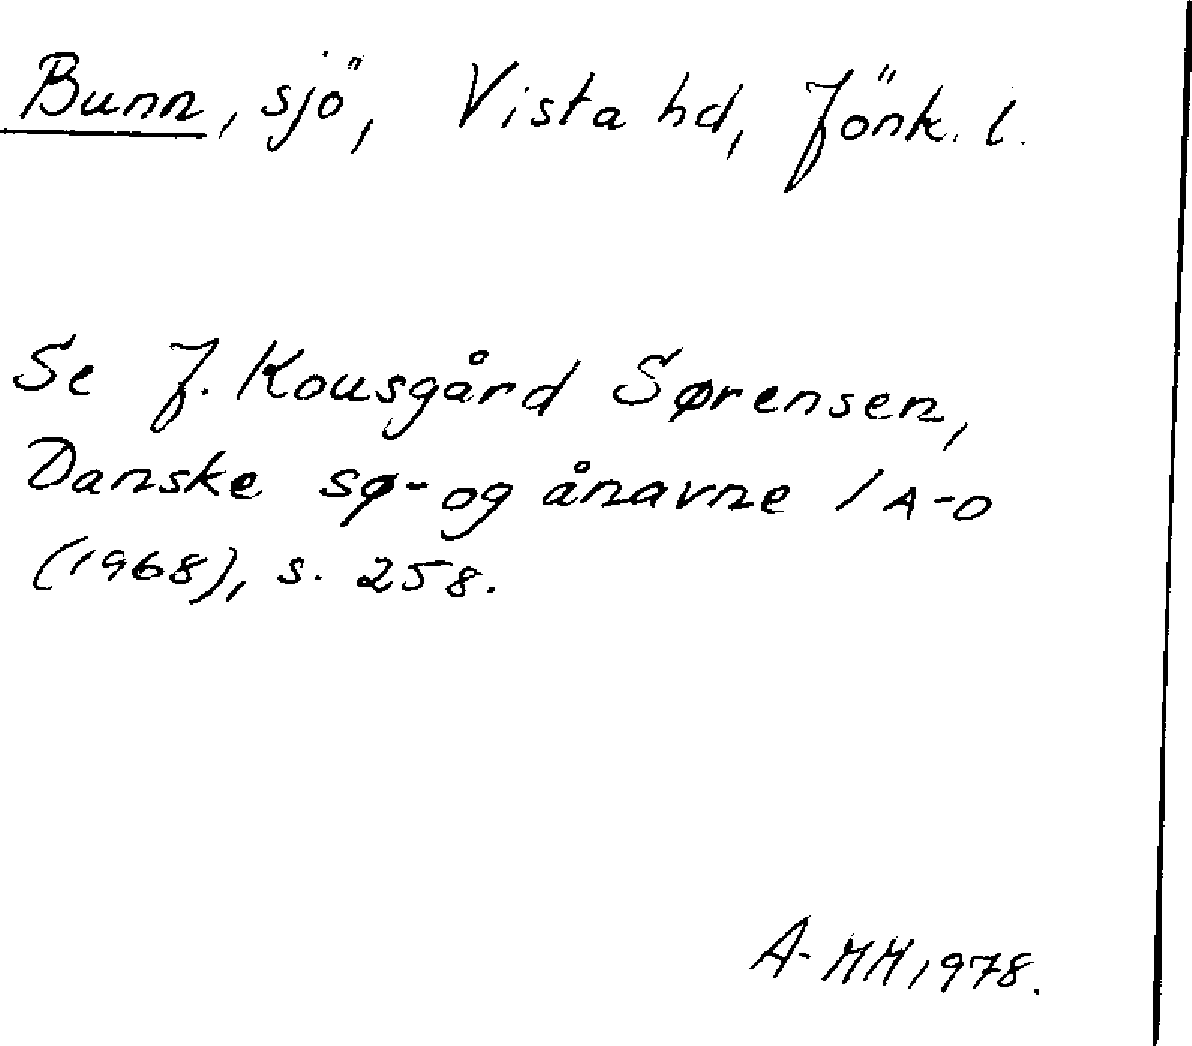 Bunn, sjö, Vista hd, Jönk. l.
Se J. Kousgård Sørensen,
Danske sø- og ånavne 1 A-O
(1968), s. 258.
A-MM 1978.